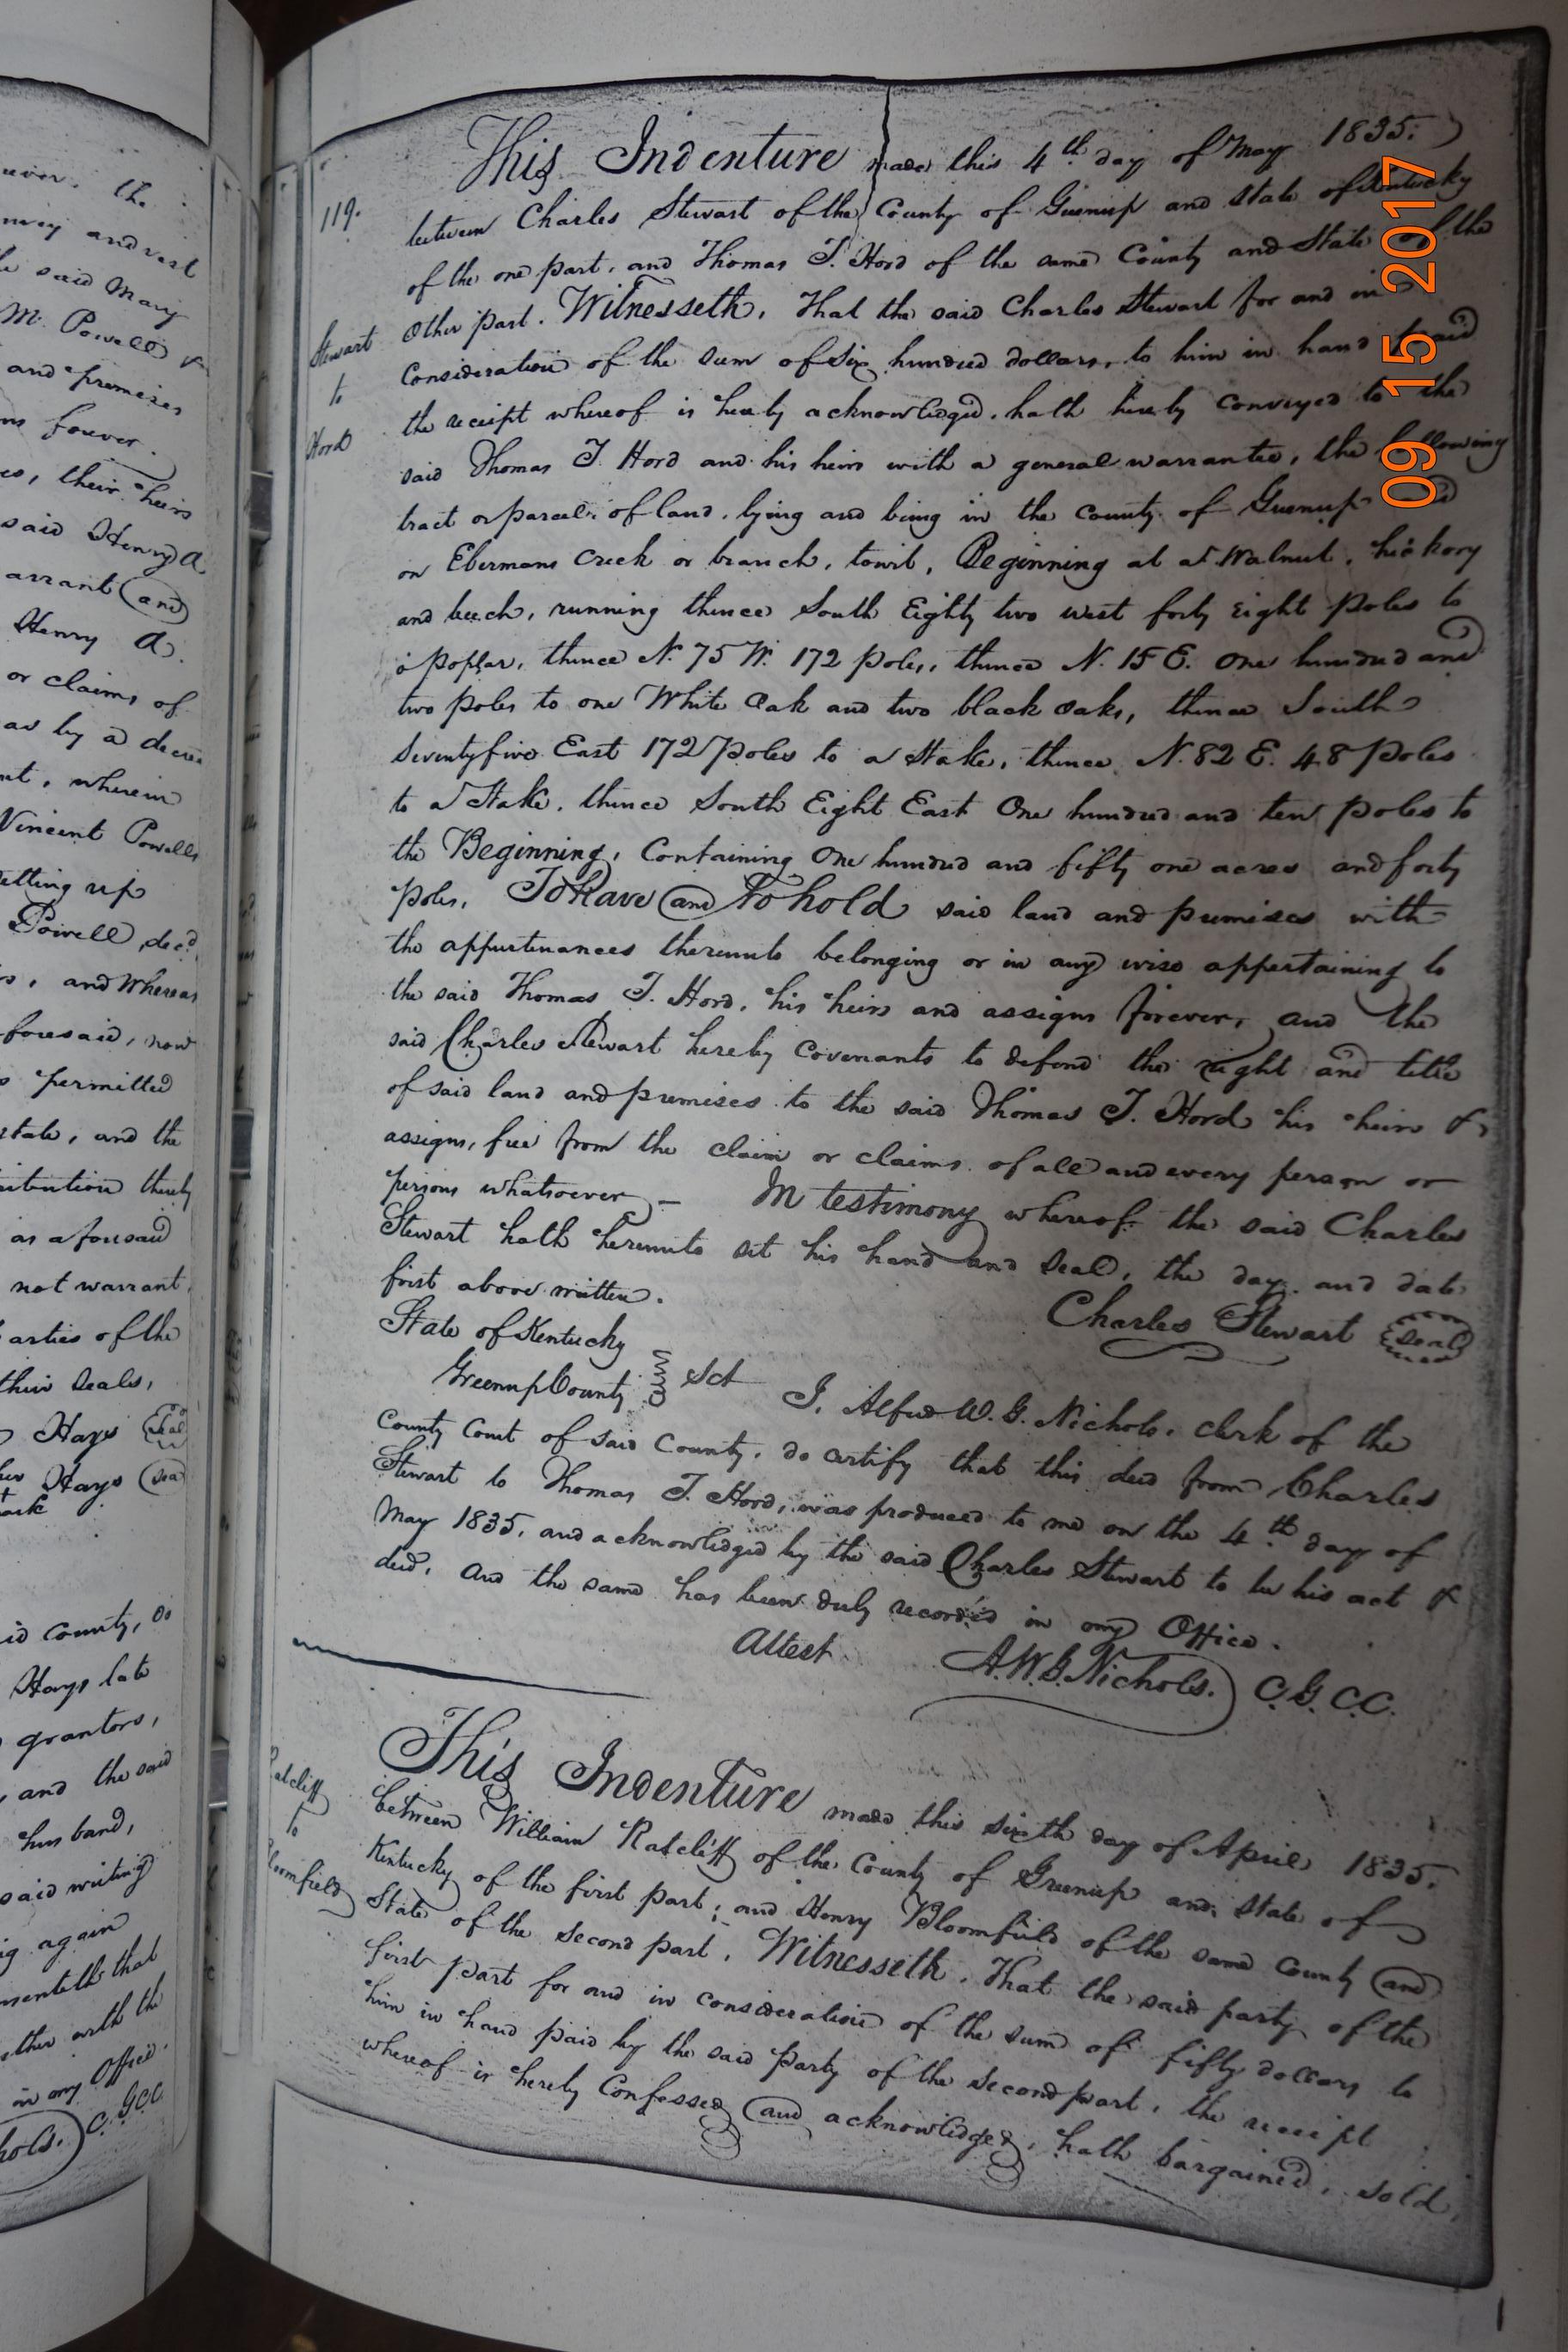 uver. the
nvey and vest
the said Mary
M. Powell &
and premises
ns forever.
es, their heirs
said Henry A
arrant and
Henry A.
or claims of
as by a decree
nt, wherein
Vincent Powells
etting up
Powell decd.
s, and Whereas
foresaid, now
s permitted
state, and the
ntention thereby
as aforesaid
not warrant
arties of the
their seals,
Hays seal
her Hays sea
ark
id County, do
Hays late
grantors,
, and the said
husband,
said writing
ig again
nsenteth that
ther with the
in my Office.
hols. C. G.C.C.
119.
Stewart
to
Hord
This Indenture made this 4th day of May 1835.
between Charles Stewart of the County of Greenup and State of Kentucky
of the one part, and Thomas T. Hord of the same County and State of the
other part. Witnesseth, That the said Charles Stewart for and in
Consideration of the sum of six hundred dollars, to him in hand paid
the receipt whereof is hereby acknowledged, hath hereby conveyed to the
said Thomas T. Hord and his heirs with a general warrantee, the following
tract or parcel of land, lying and being in the County of Greenup and
on Ebermans Creek or branch, towit, Beginning at a Walnut, hickory
and beech, running thence South Eighty two west forty Eight poles to
a poplar, thence N. 75 W. 172 poles, thence N. 15 E. One hundred and
two poles to one White Oak and two black oaks, thence South
Seventyfive East 172 poles to a Stake, thence N. 82 E. 48 poles
to a Stake, thence South Eight East One hundred and ten poles to
the Beginning, Containing One hundred and fifty one acres and forty
poles. To Have and to hold said land and premises with
the appurtenances thereunto belonging or in any wise appertaining to
the said Thomas T. Hord, his heirs and assigns forever, and the
said Charles Stewart hereby covenants to defend the right and title
of said land and premises to the said Thomas T. Hord his heirs &
assigns, free from the claim or claims of all and every person or
persons whatsoever – In testimony whereof the said Charles
Stewart hath hereunto set his hand and seal, the day and date
first above written.
Charles Stewart seal
State of Kentucky
Greenup County Sct I, Alfred W. G. Nichols, clerk of the
County Court of said County, do certify that this deed from Charles
Stewart to Thomas T. Hord, was produced to me on the 4th day of
May 1835, and acknowledged by the said Charles Stewart to be his act &
deed, and the same has been duly recorded in my Office.
Attest A.W.G. Nichols. C.G.C.C.
Ratcliff
to
Bloomfield
This Indenture made this sixth day of April 1835.
between William Ratcliff of the County of Greenup and State of
Kentucky of the first part; and Henry Bloomfield of the same County and
State of the second part, Witnesseth, That the said party of the
first part for and in consideration of the sum of fifty dollars to
him in hand paid by the said party of the second part, the receipt
whereof is hereby Confessed and acknowledged, hath bargained, sold,
09 15 2017